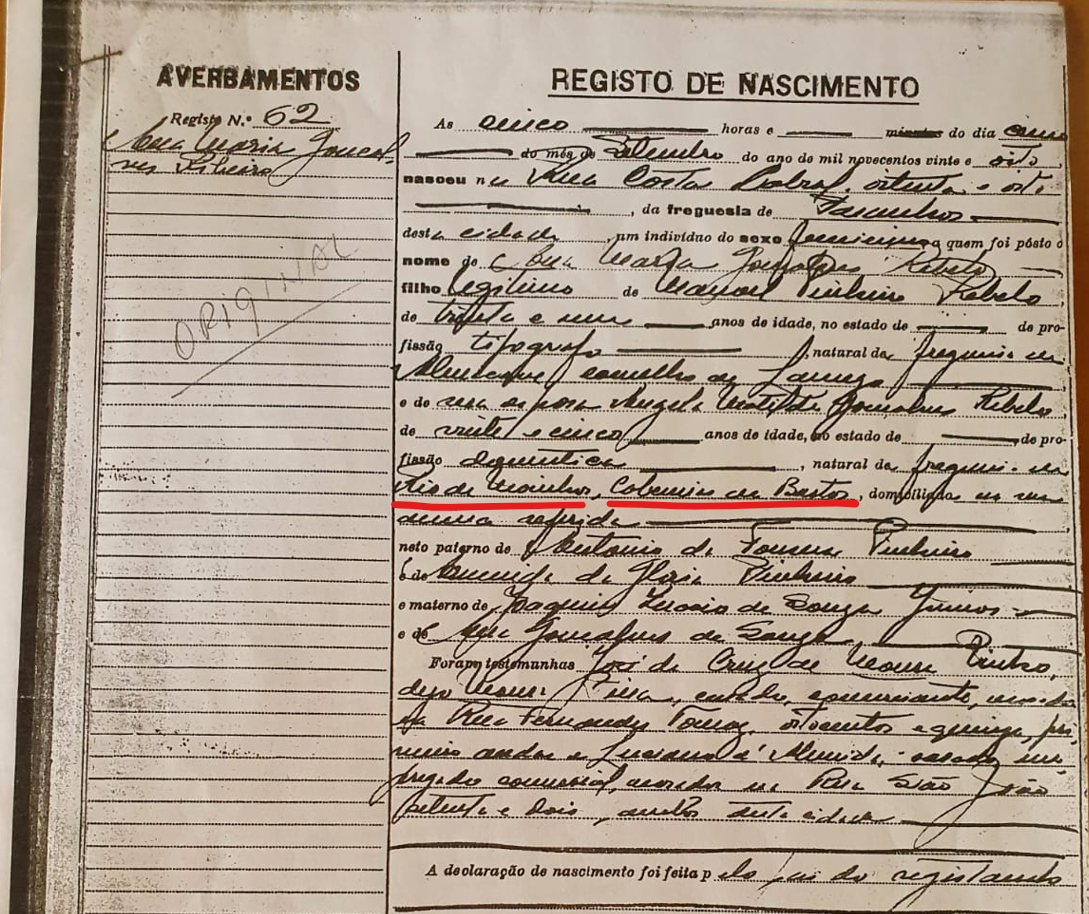 AVERBAMENTOS
Registo N.º 62
Ana Maria Goncal
ves Ribeiro
ORIGINAL
REGISTO DE NASCIMENTO
As cinco horas e minutos do dia cinco
do mês de Setembro do ano de mil novecentos vinte e oito
nasceu na Rua Costa Cabral, oitenta e oito
, da freguesia de Paranhos
desta cidade um indivíduo do sexo femenino a quem foi pôsto o
nome de Ana Maria Gonçalves Rebelo
filho legitimo de Manoel Pinheiro Rebelo
de trinta e um anos de idade, no estado de de pro-
fissão tipografo , natural da freguesia de
concelho de
e de sua esposa Angela Matilde Gonçalves Rebelo,
de vinte e cinco anos de idade, no estado de de pro-
fissão domestica , natural da freguesia de
Rio de Moinhos, de Bastos, domiciliado na rua
acima referida
neto paterno de Antonio da Fonseca Pinheiro
e de da Gloria Pinheiro
e materno de Joaquim de Souza Junior
e de Gonçalves de Souza
Foram testemunhas José da Cruz de Moura
digo Moura casado, comerciante, morador
na Rua Fernandes Tomaz, oitocentos e quinze, pri
meiro andar e Luciano d'Almeida, casado, em
pregado comercial, morador na Rua São João
setenta e dois, ambos desta cidade
A declaração de nascimento foi feita pelo pai do registando